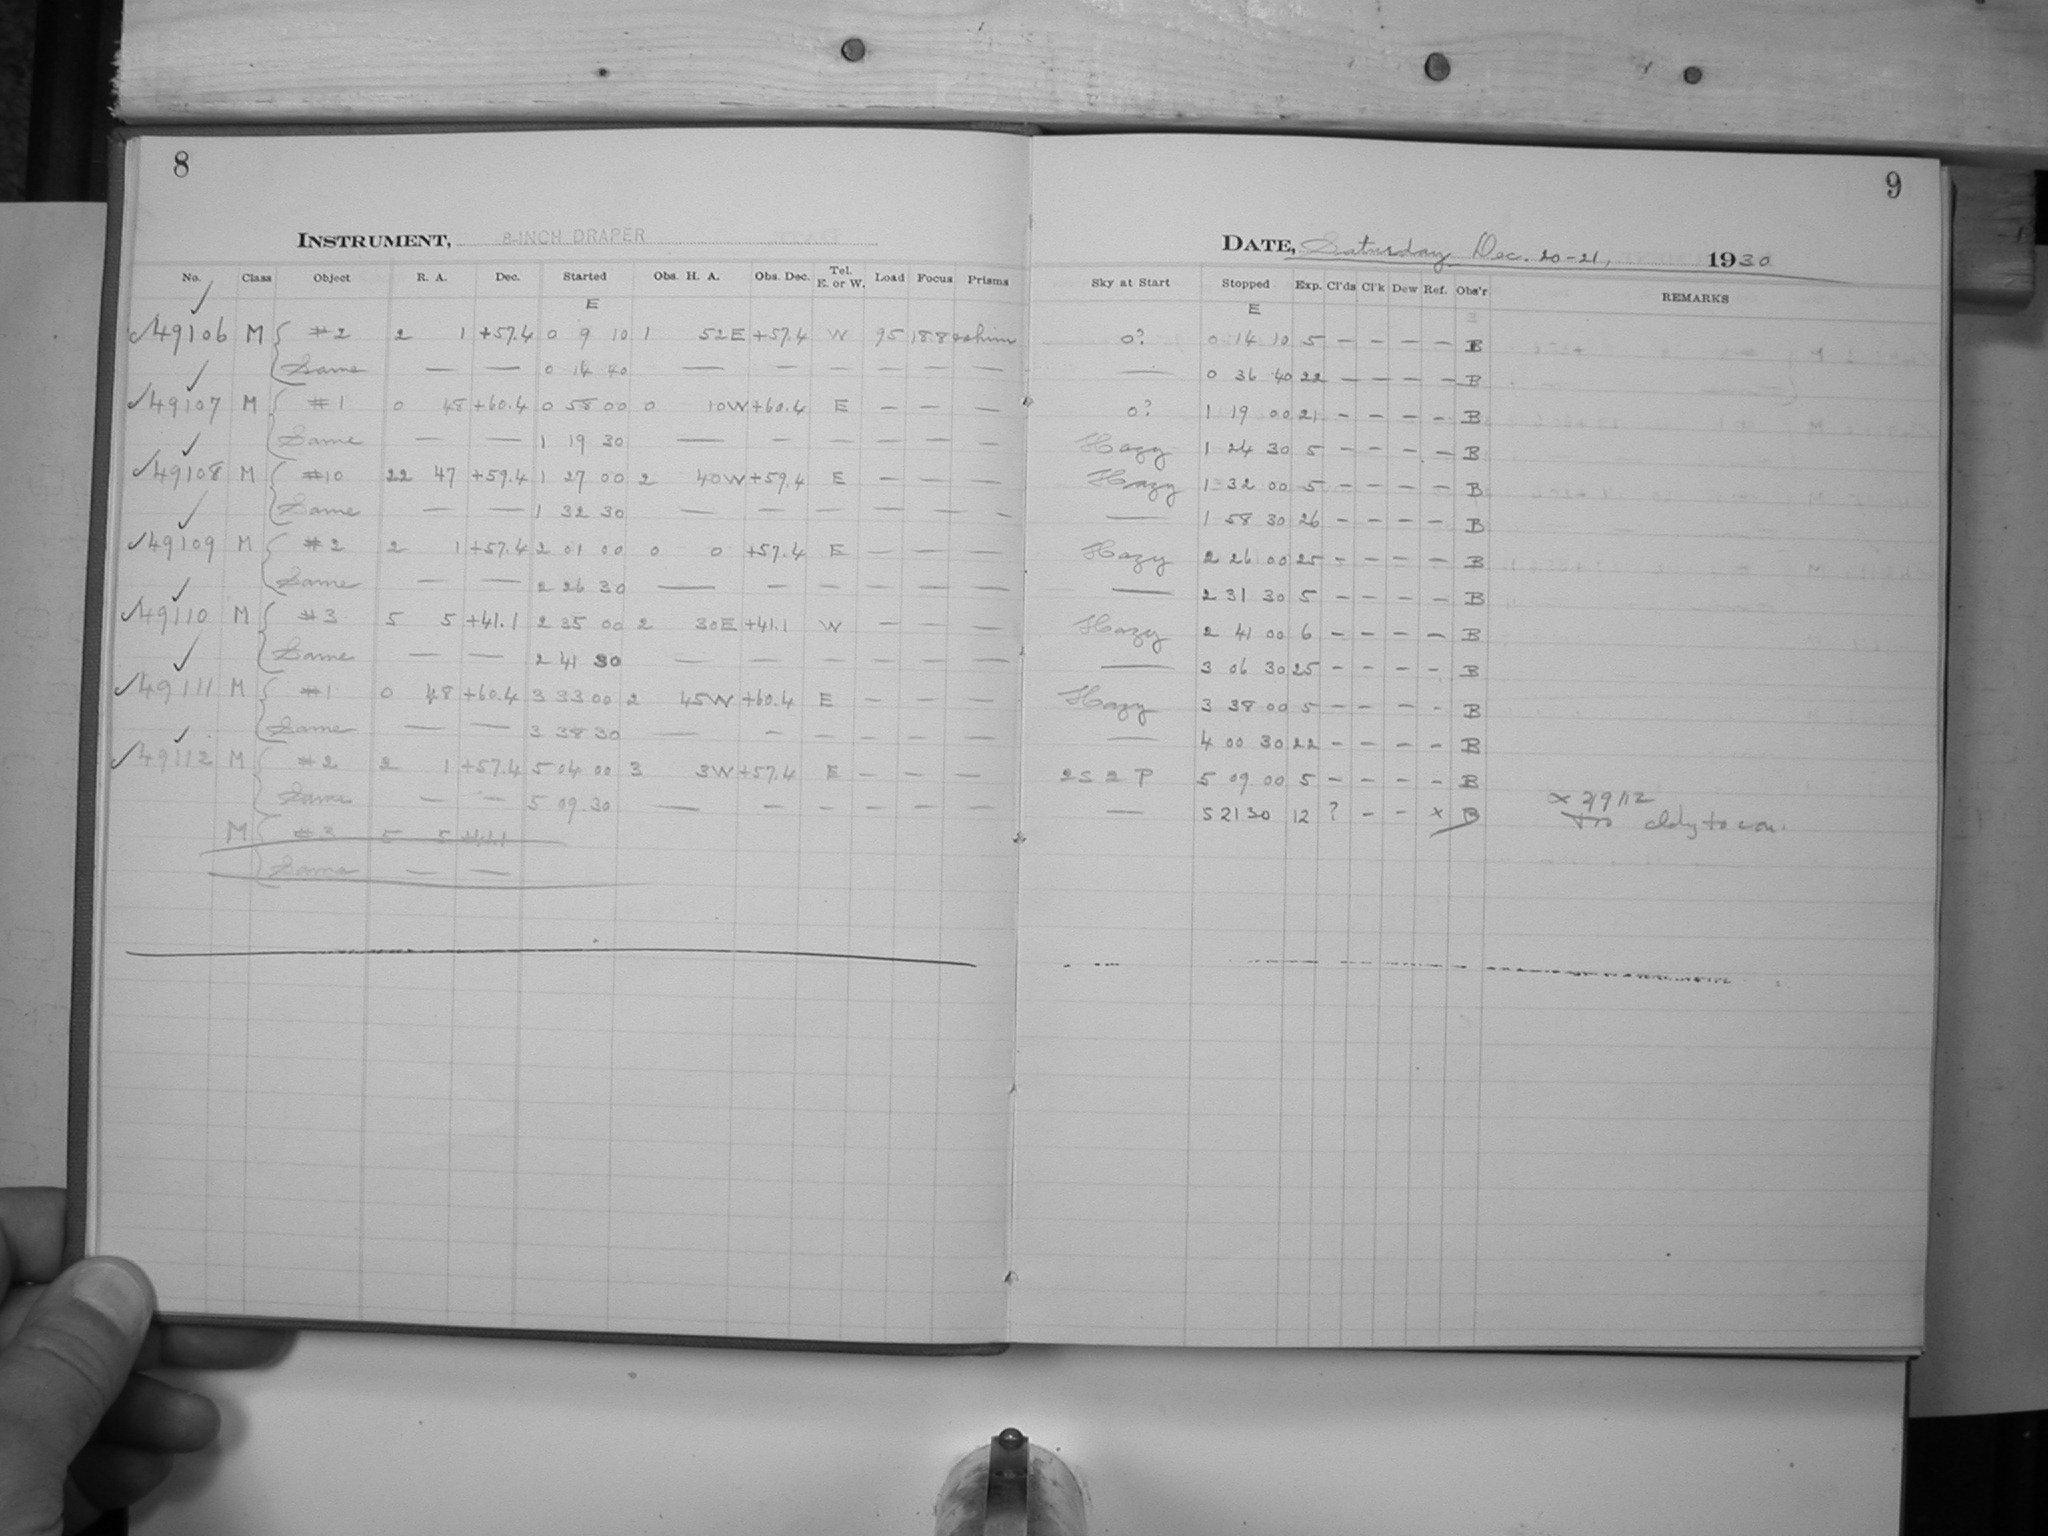 8
INSTRUMENT, 8-INCH DRAPER
No. Class Object R. A. Dec. Started Obs. H. A. Obs. Dec. Tel. E. or W. Load Focus Prisms
E
49106 M { #2 2 1 +57.4 0 9 10 1 52E +57.4 W 95 18.8
Same — — 0 14 40 — — — — — —
49107 M { #1 0 48 +60.4 0 58 00 0 10W +60.4 E — — —
Same — — 1 19 30 — — — — — —
49108 M { #10 22 47 +59.4 1 27 00 2 40W +59.4 E — — —
Same — — 1 32 30 — — — — — —
49109 M { #2 2 1 +57.4 2 01 00 0 0 +57.4 E — — —
Same — — 2 26 30 — — — — — —
49110 M { #3 5 5 +41.1 2 35 00 2 30E +41.1 W — — —
Same — — 2 41 30 — — — — — —
49111 M { #1 0 48 +60.4 3 33 00 2 45W +60.4 E — — —
Same — — 3 38 30 — — — — — —
49112 M { #2 2 1 +57.4 5 04 00 3 3W +57.4 E — — —
Same — — 5 09 30 — — — — — —
M { #3 5 5 41.1
Same — —
9
DATE, Saturday Dec. 20-21, 1930
Sky at Start Stopped Exp. Cl'ds Cl'k Dew Ref. Obs'r REMARKS
E
0? 0 14 10 5 — — — — B
— 0 36 40 22 — — — — B
0? 1 19 00 21 — — — — B
Hazy 1 24 30 5 — — — — B
Hazy 1 32 00 5 — — — — B
— 1 58 30 26 — — — — B
Hazy 2 26 00 25 — — — — B
— 2 31 30 5 — — — — B
Hazy 2 41 00 6 — — — — B
— 3 06 30 25 — — — — B
Hazy 3 38 00 5 — — — — B
— 4 00 30 22 — — — — B
2 S 2 P 5 09 00 5 — — — — B
— 5 21 30 12 ? — — x B
cldy to con.